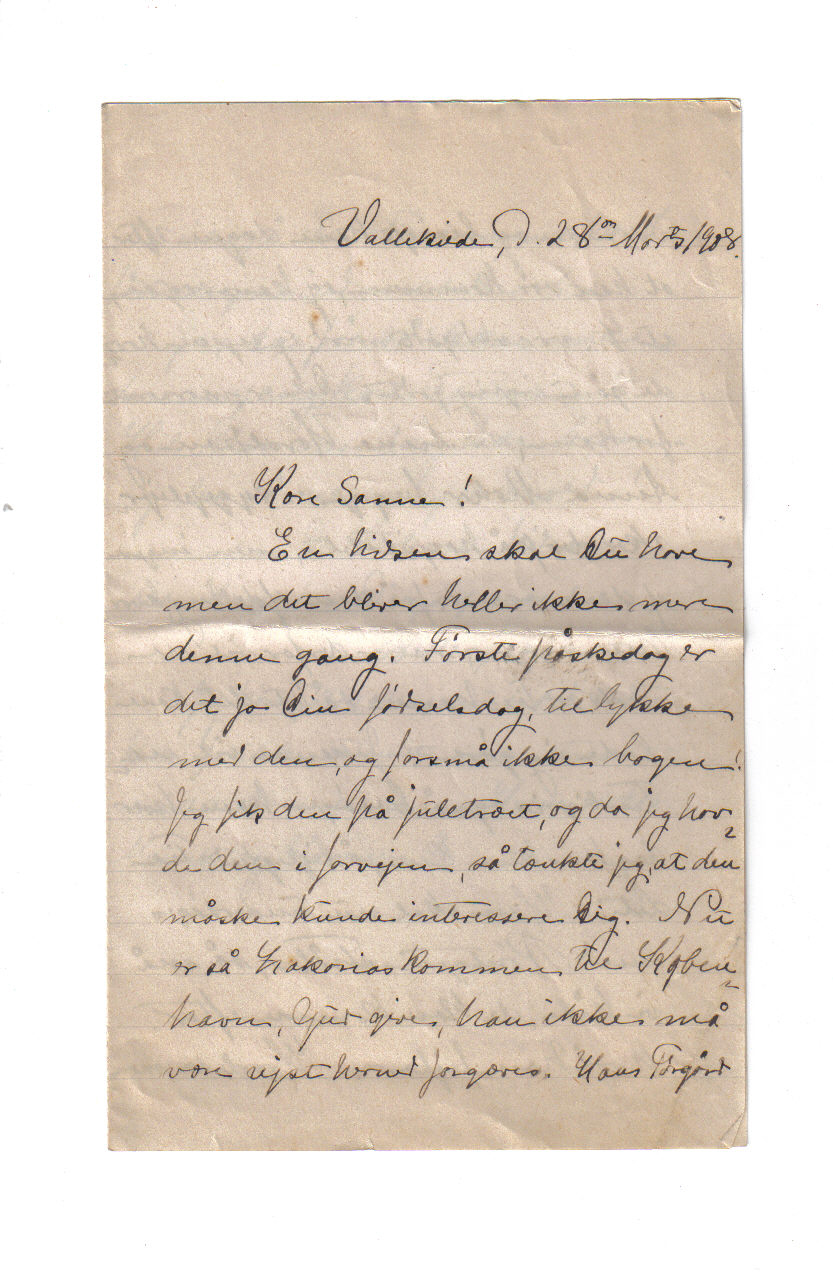 Vallekilde, D. 28de Marts 1908.
Kære Sanne!
En hilsen skal Du have
men det bliver heller ikke mere
denne gang. Første påskedag er
det jo Din fødselsdag, til lykke
med den, og forsmå ikke bogen!
Jeg fik den på juletræet, og da jeg hav-
de den i forvejen, så tænkte jeg, at den
måske kunde interessere Dig. Nu
er så Zakarias kommen til Køben-
havn, Gud give, han ikke må
være rejst herned forgæves. Hans